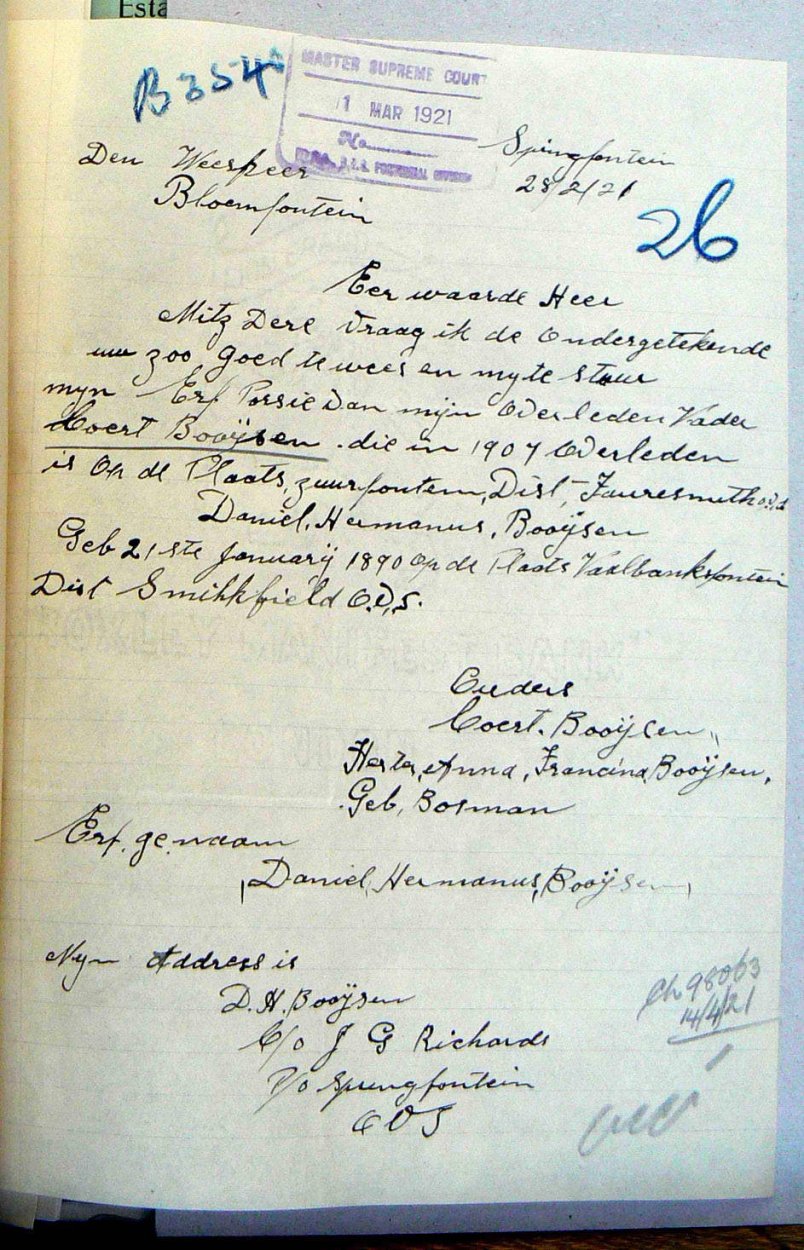 Esta
B354
MASTER SUPREME COURT
1 MAR 1921
No
O.F.S. PROVINCIAL DIVISION
Springfontein
28/2/21
Den Weesheer
Bloemfontein
26
Eer waarde Heer
Mitz Dere Vraag ik de Ondergetekende
uw zoo goed te wees en my te stuur
myn Erf Porsie van mijn Overleden Vader
Coert Booijsen. die in 1907 Overleden
is Op de Plaats, zuurfontein, Dist, Fauresmith O.V.S
Daniel, Hermanus, Booijsen
Geb 21ste Januarij 1890 op de Plaats Vaalbanksfontein
Dist Smithfield O.V.S.
Ouders
Coert. Booijsen,,
Hester, Anna, Francina, Booijsen,
Geb, Bosman
Erf. ge. naam
Daniel, Hermanus, Booijsen,
Myn Address is
D. H. Booijsen
C/o J G Richards
P/o Springfontein
O V S
Ch 98063
14/4/21